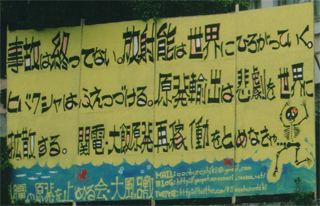 事故は終ってない。放射能は世界にひろがっていく。
ヒバクシャはふえつづける。原発輸出は悲劇を世界に
拡散する。関電・大飯原発再稼働をとめなきゃ…
原発を止める会
MAIL:
BLOG: